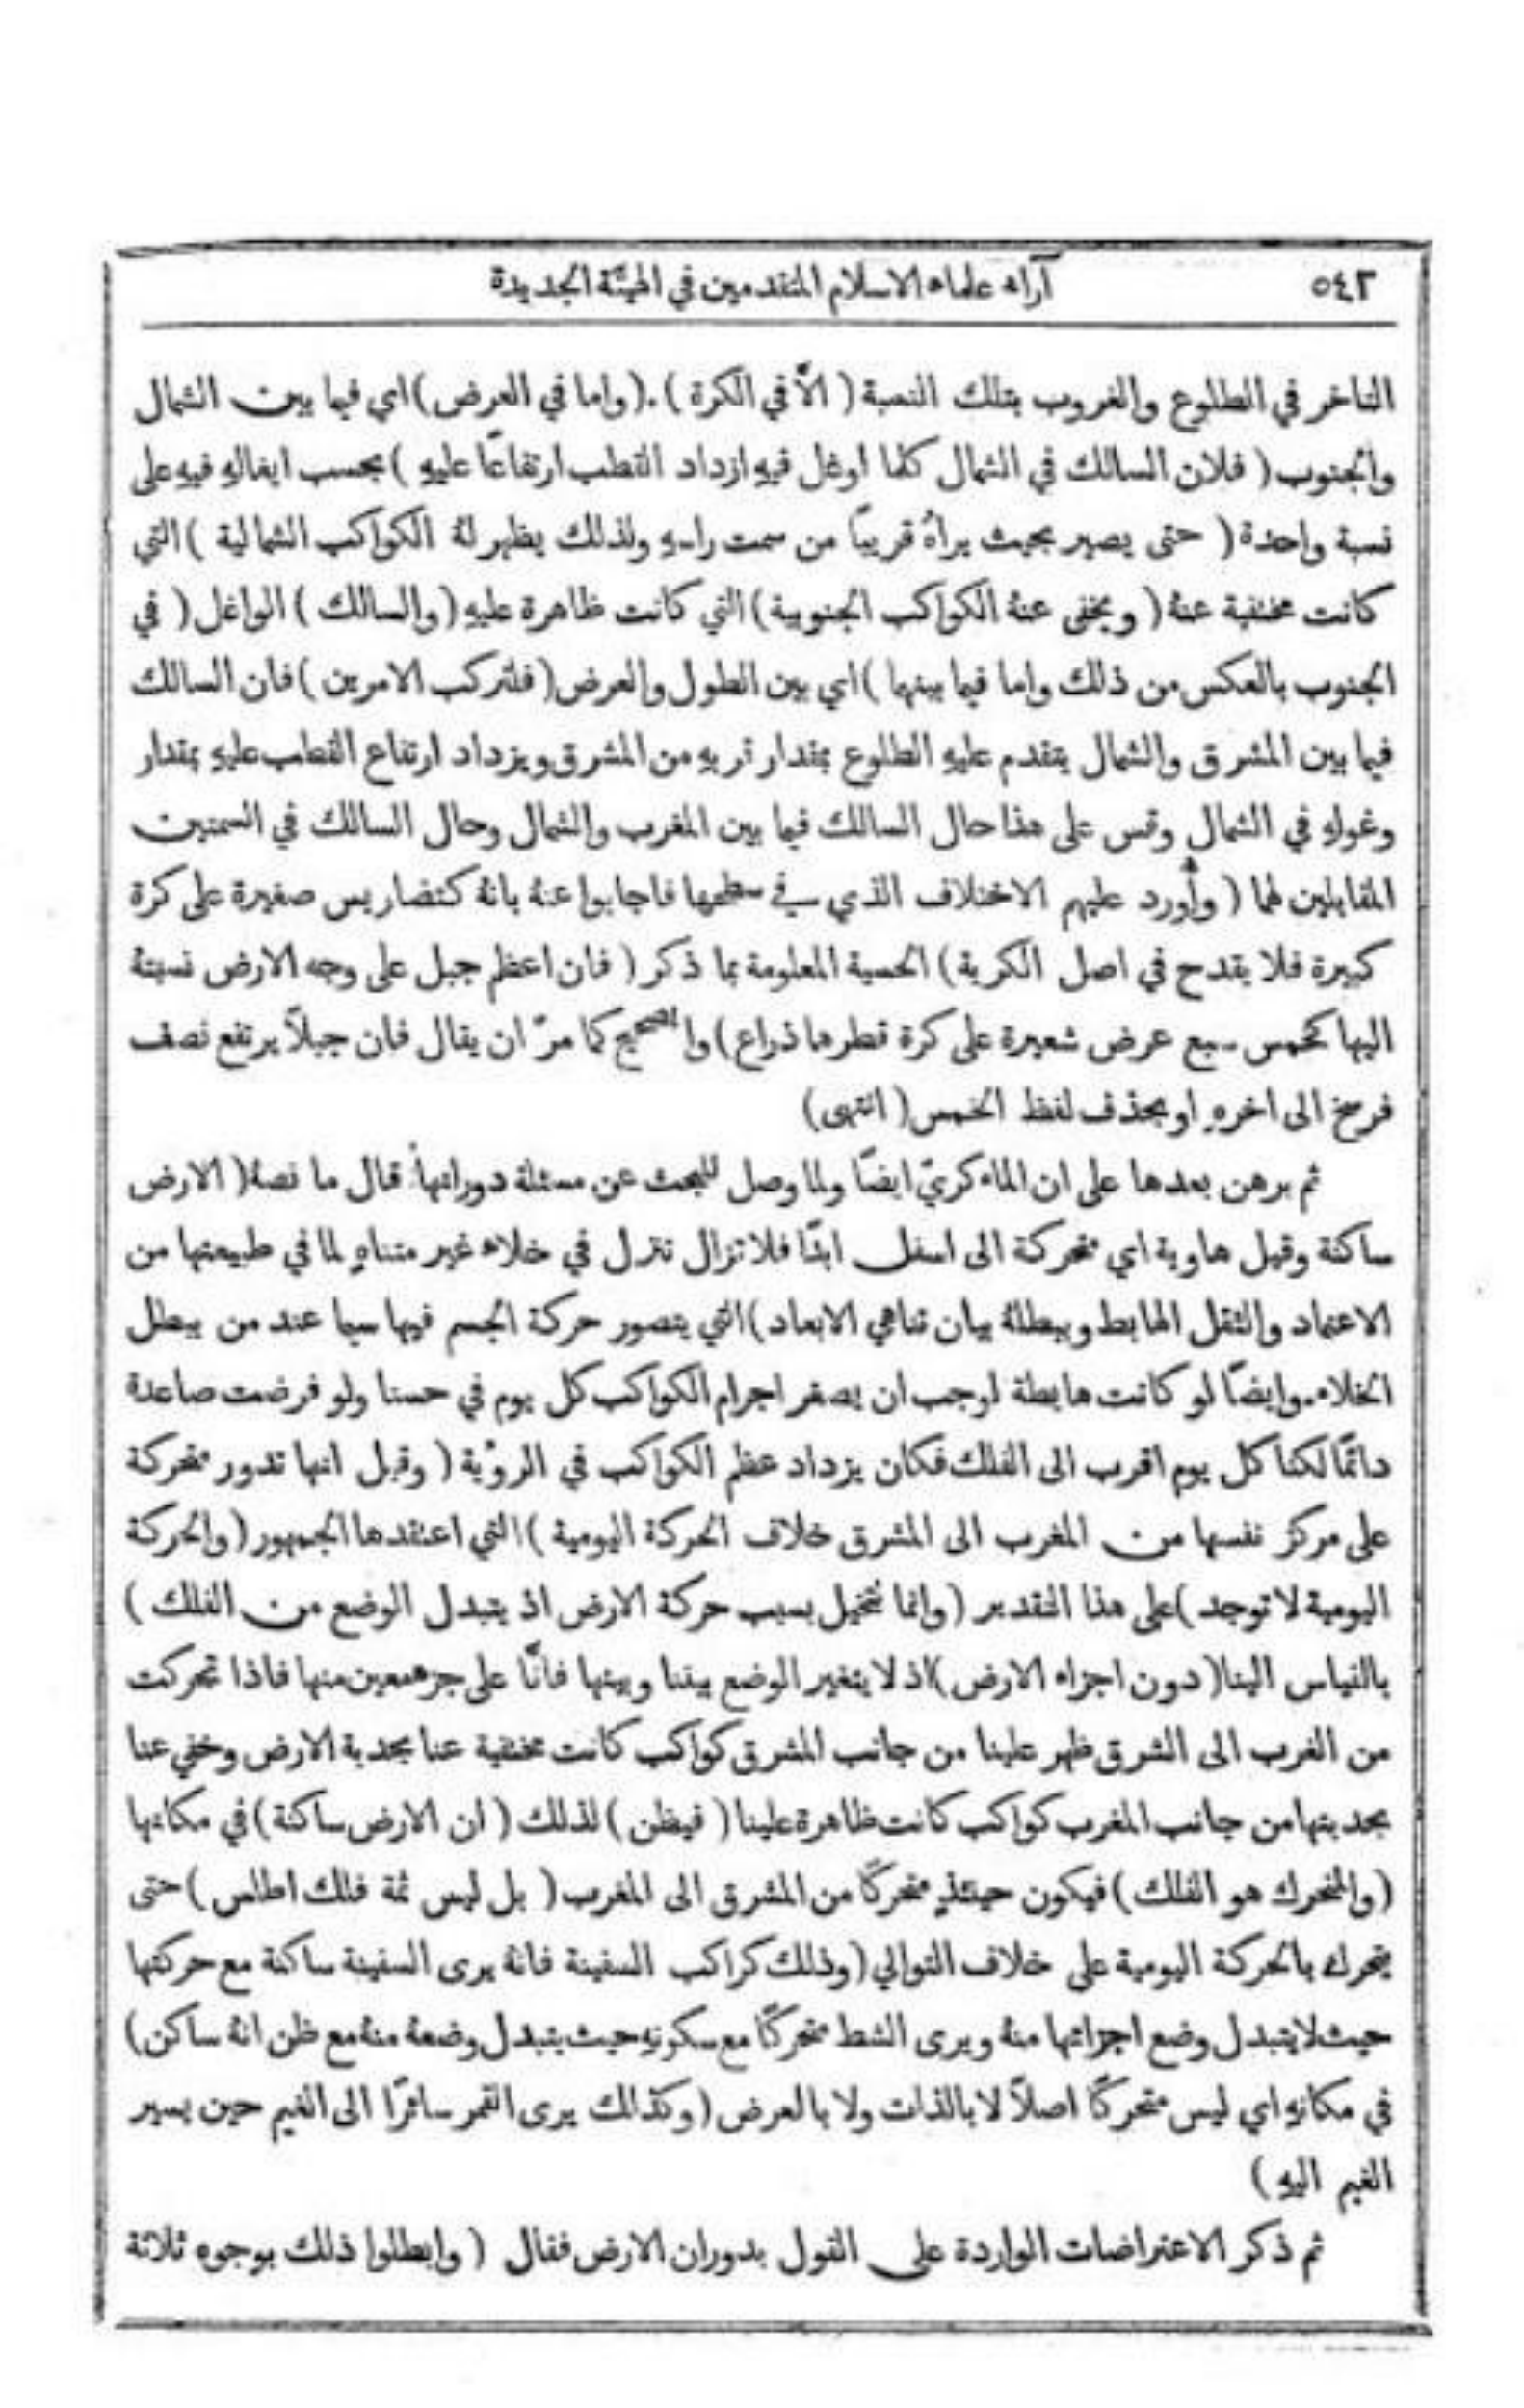 ٥٤٢
آراء علماء الاسلام المتقدمين في الهيئة الجديدة
التاخر في الطلوع والغروب بتلك النسبة ( الَّا في الكرة ) . ( واما في العرض ) اي فيما بين الشمال
والجنوب ( فلان السالك في الشمال كلما اوغل فيهِ ازداد القطب ارتفاعًا عليهِ ) بحسب ايغالهِ فيهِ على
نسبة واحدة ( حتى يصير بحيث يراهُ قريبًا من سمت راسهِ ولذلك يظهر لهُ الكواكب الشمالية ) التي
كانت مختفية عنهُ ( ويخفى عنهُ الكواكب الجنوبية ) التي كانت ظاهرة عليهِ ( والسالك ) الواغل ( في
الجنوب بالعكس من ذلك واما فيما بينهما ) اي بين الطول والعرض ( فلتركب الامرين ) فان السالك
فيما بين المشرق والشمال يتقدم عليهِ الطلوع بمقدار قربهِ من المشرق ويزداد ارتفاع القطب عليهِ بمقدار
وغولهِ في الشمال وقس على هذا حال السالك فيما بين المغرب والشمال وحال السالك في السمتين
المقابلين لهما ( وأُورد عليهم الاختلاف الذي في سطحها فاجابوا عنهُ بانهُ كتضاريس صغيرة على كرة
كبيرة فلا يقدح في اصل الكرية ) الحسية المعلومة بما ذكر ( فان اعظم جبل على وجه الارض نسبتهُ
اليها كخمس سبع عرض شعيرة على كرة قطرها ذراع ) والصحيح كما مرّ ان يقال فان جبلاً يرتفع نصف
فرسخ الى اخرهِ او بحذف لفظ الخمس ( انتهى )
ثم برهن بعدها على ان الماء كريّ ايضًا ولما وصل للبحث عن مسئلة دورانها قال ما نصهُ ( الارض
ساكنة وقيل هاوية اي متحركة الى اسفل ابدًا فلا تزال تنزل في خلاء غير متناهٍ لما في طبيعتها من
الاعتماد والثقل الهابط ويبطلهُ بيان تناهي الابعاد ) التي يتصور حركة الجسم فيها سيما عند من يبطل
الخلاء . وايضًا لو كانت هابطة لوجب ان يصغر اجرام الكواكب كل يوم في حسنا ولو فرضت صاعدة
دائمًا لكنا كل يوم اقرب الى الفلك فكان يزداد عظم الكواكب في الروْية ( وقيل انها تدور متحركة
على مركز نفسها من المغرب الى المشرق خلاف الحركة اليومية ) التي اعتقدها الجمهور ( والحركة
اليومية لا توجد ) على هذا التقدير ( وانما تُخيل بسبب حركة الارض اذ يتبدل الوضع من الفلك )
بالقياس الينا ( دون اجزاء الارض ) اذ لا يتغير الوضع بيننا وبينها فانَّا على جزء معين منها فاذا تحركت
من الغرب الى الشرق ظهر علينا من جانب المشرق كواكب كانت مختفية عنا بحدبة الارض وخفي عنا
بحدبتها من جانب المغرب كواكب كانت ظاهرة علينا ( فيظن ) لذلك ( ان الارض ساكنة ) في مكانها
( والمتحرك هو الفلك ) فيكون حينئذٍ متحركًا من المشرق الى المغرب ( بل ليس ثمة فلك اطلس ) حتى
يتحرك بالحركة اليومية على خلاف التوالي ( وذلك كراكب السفينة فانهُ يرى السفينة ساكنة مع حركتها
حيث لا يتبدل وضع اجزائها منهُ ويرى الشط متحركًا مع سكونهِ حيث يتبدل وضعهُ منهُ مع ظن انهُ ساكن )
في مكانهِ اي ليس متحركًا اصلاً لا بالذات ولا بالعرض ( وكذلك يرى القمر سائرًا الى الغيم حين يسير
الغيم اليهِ )
ثم ذكر الاعتراضات الواردة على القول بدوران الارض فقال ( وابطلوا ذلك بوجوه ثلاثة